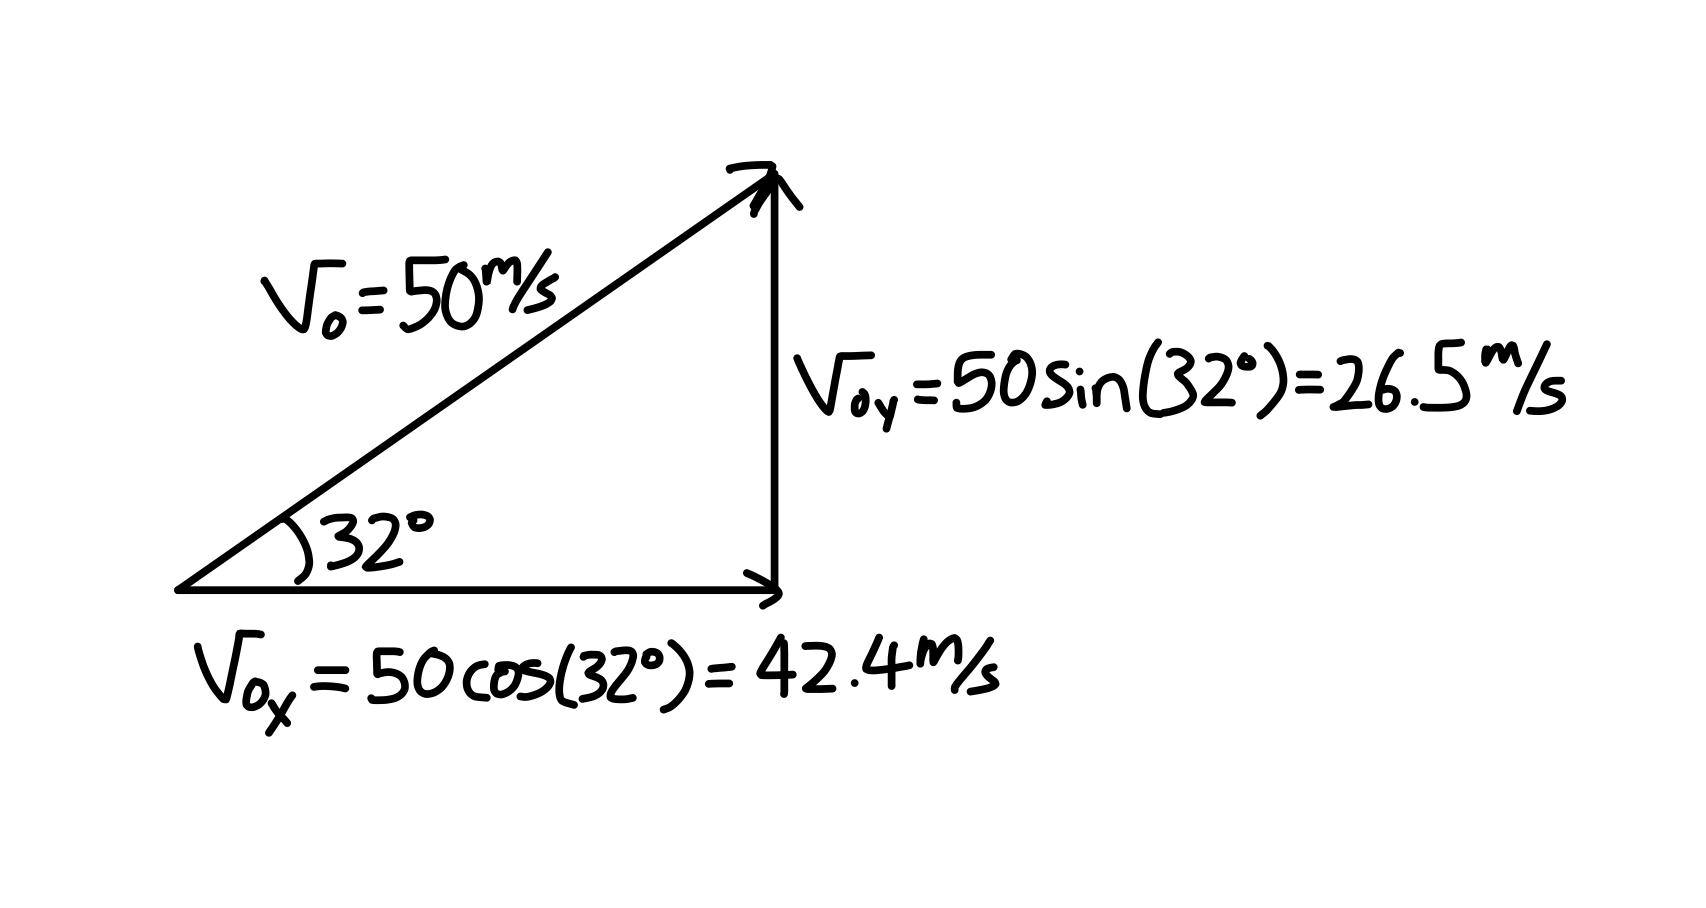 V₀ = 50 m/s
V₀y = 50 sin(32°) = 26.5 m/s
32°
V₀x = 50 cos(32°) = 42.4 m/s